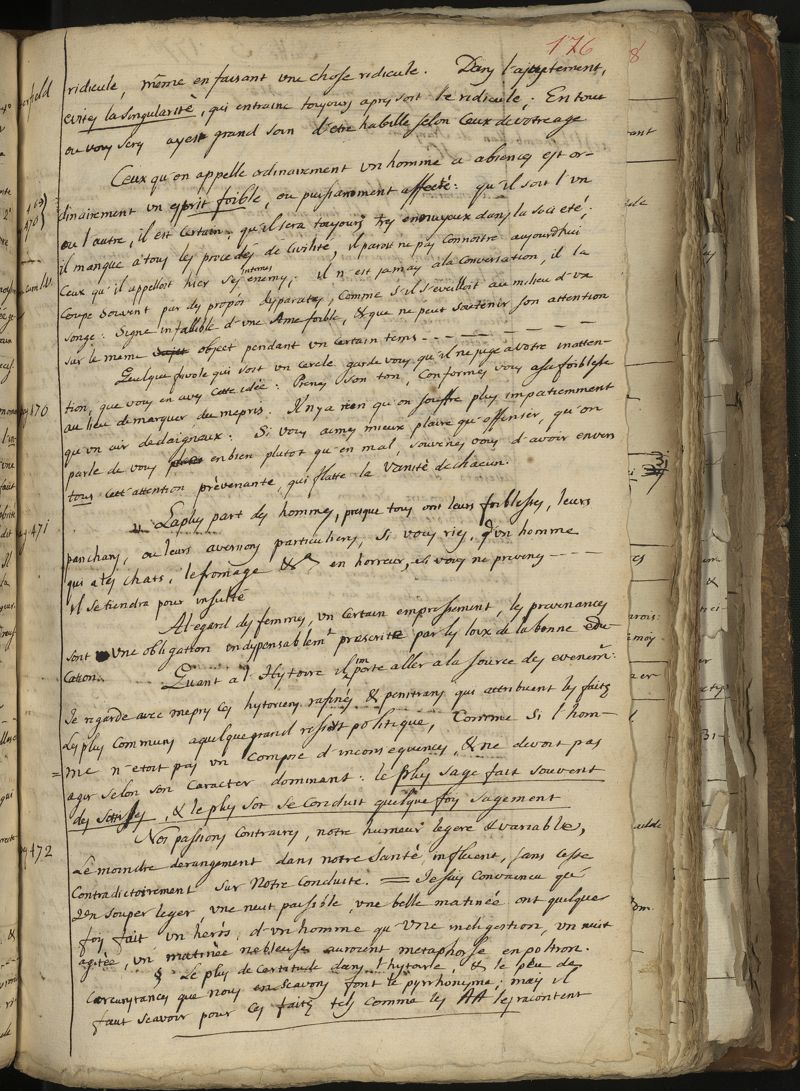 176
ridicule, même en faisant une chose ridicule. Dans l'ajustement,
evitez la singularité, qui entraine toujours apres soit le ridicule; En tout
ou vous serez ayez grand soin d'etre habillé selon Ceux de votre age
Ceux qu'on appelle ordinairement un homme a absences est or-
dinairement un esprit foible, ou puissamment affecté: qu'il soit l'un
ou l'autre, il est Certain, qu'il sera toujours tres ennuyeux dans la societé;
il manque à tous les procedés de Civilité, il paroit ne pas connoitre aujourdhui
Ceux qu'il appelloit hier ses intimes; il n'est jamais à la Conversation, il la
Coupe souvent par des propos disparates, Comme s'il s'eveilloit au milieu d'un
songe: Signe infallible d'une Ame foible, & que ne peut soutenir son attention
sur le meme object pendant un certain tems - - - - - -
Quelque frivole qui soit un cercle garde vous qu'il ne juge à votre inatten-
tion, que vous en avez cette idée: Prenez son ton, Conformez vous a sa foiblesse
470
au lieu de marquer du mepris. Il n'y a rien qu'on souffre plus impatiemment
qu'un air dedaigneux: Si vous aimez mieux plaire qu'offenser, qu'on
parle de vous en bien plutot qu'en mal, souvenez vous d'avoir envers
tous cette attention prèvenante, qui flatte la Vanité de chacun.
471
La plus part des hommes, presque tous ont leurs foiblesses, leurs
panchans, ou leurs aversions particuliers, si vous riez, d'un homme
qui a les chats, le fromage &c en horreur, si vous ne prevenez - - - -
il se tiendra pour insulté
A l'egard des femmes, un certain empressement, les prevenances
sont une obligation indispensablemt prescrite par les loix de la bonne edu-
cation. Quant a l'Hystoire il importe aller a la source des evenem.
Je regarde avec mepris ces hystoriens rafinés & penitrans qui attribuent les faits
Les plus Communs a quelque grand ressort politique, Comme si l'hom-
me n'etoit pas un Composé d'inconsequences, & ne devoit pas
agir selon son Caracter dominant: le plus sage fait souvent
des sottises, & le plus sot se conduit quelque fois sagement
472
Nos passions Contraires, notre humeur legere & variable,
Le moindre dérangement dans notre Santé, influent, sans cesse
Contradictoirement sur Notre Conduite. = Je suis Convaincu que
Un souper leger, une nuit paisible, une belle matinée ont quelque
fois fait un heros, d'un homme qu'une indigestion, un nuit
agitée, un matinée nebleuse auroient metaphorse en poltron.
§. Le plus de certitude dans l'hystoire, & le peu de
Circunstances que nous en scavons font le pyrrhonisme; mais il
faut scavoir pour ces faits tels comme les AA les racontent